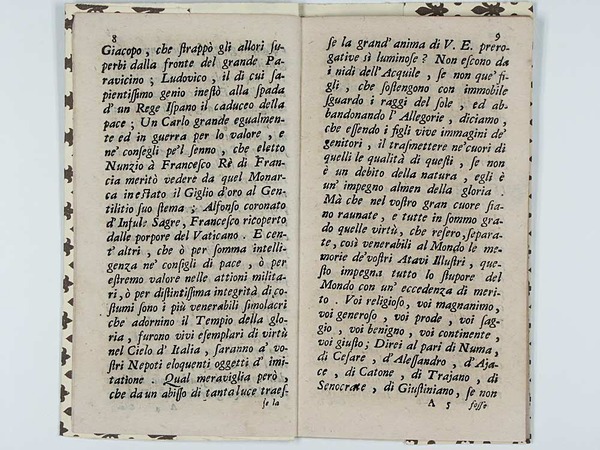 8
Giacopo, che ſtrappò gli allori ſu-
perbi dalla fronte del grande Pa-
ravicino; Ludovico, il di cui ſa-
pientiſſimo genio ineſtò alla ſpada
d'un Rege Iſpano il caduceo della
pace; Un Carlo grande egualmen-
te ed in guerra per lo valore, e
ne' conſegli pe'l ſenno, che eletto
Nunzio à Franceſco Rè di Fran-
cia meritò vedere da quel Monar-
ca ineſtato il Giglio d'oro al Gen-
tilitio ſuo ſtema; Alfonſo coronato
d'Inſule Sagre, Franceſco ricoperto
dalle porpore del Vaticano. E cent'
altri, che ò per ſomma intelli-
genza ne' conſigli di pace, ò per
eſtremo valore nelle attioni milita-
ri, ò per diſtintiſſima integrità di co-
ſtumi ſono i più venerabili ſimolacri
che adornino il Tempio della glo-
ria, furono vivi eſemplari di virtù
nel Cielo d'Italia, ſaranno a' vo-
ſtri Nepoti eloquenti oggetti d'imi-
tatione. Qual meraviglia però,
che da un abiſſo di tanta luce traeſ-
ſe la
9
ſe la grand'anima di V. E. prero-
gative sì luminoſe? Non eſcono da
i nidi dell'Acquile, ſe non que' fi-
gli, che ſoſtengono con immobile
ſguardo i raggi del ſole, ed ab-
bandonando l'Allegorie, diciamo,
che eſſendo i figli vive immagini de'
genitori, il traſmettere ne' cuori di
quelli le qualità di queſti, ſe non
è un debito della natura, egli è
un' impegno almen della gloria.
Mà che nel voſtro gran cuore ſia-
no raunate, e tutte in ſommo gra-
do quelle virtù, che reſero, ſepara-
te, così venerabili al Mondo le me-
morie de' voſtri Atavi Illuſtri, que-
ſto impegna tutto lo ſtupore del
Mondo con un' eccedenza di meri-
to. Voi religioſo, voi magnanimo,
voi generoſo, voi prode, voi ſag-
gio, voi benigno, voi continente,
voi giuſto; Direi al pari di Numa,
di Ceſare, d'Aleſſandro, d'Aja-
ce, di Catone, di Trajano, di
Senocrate, di Giuſtiniano, ſe non
A 5 foſſe